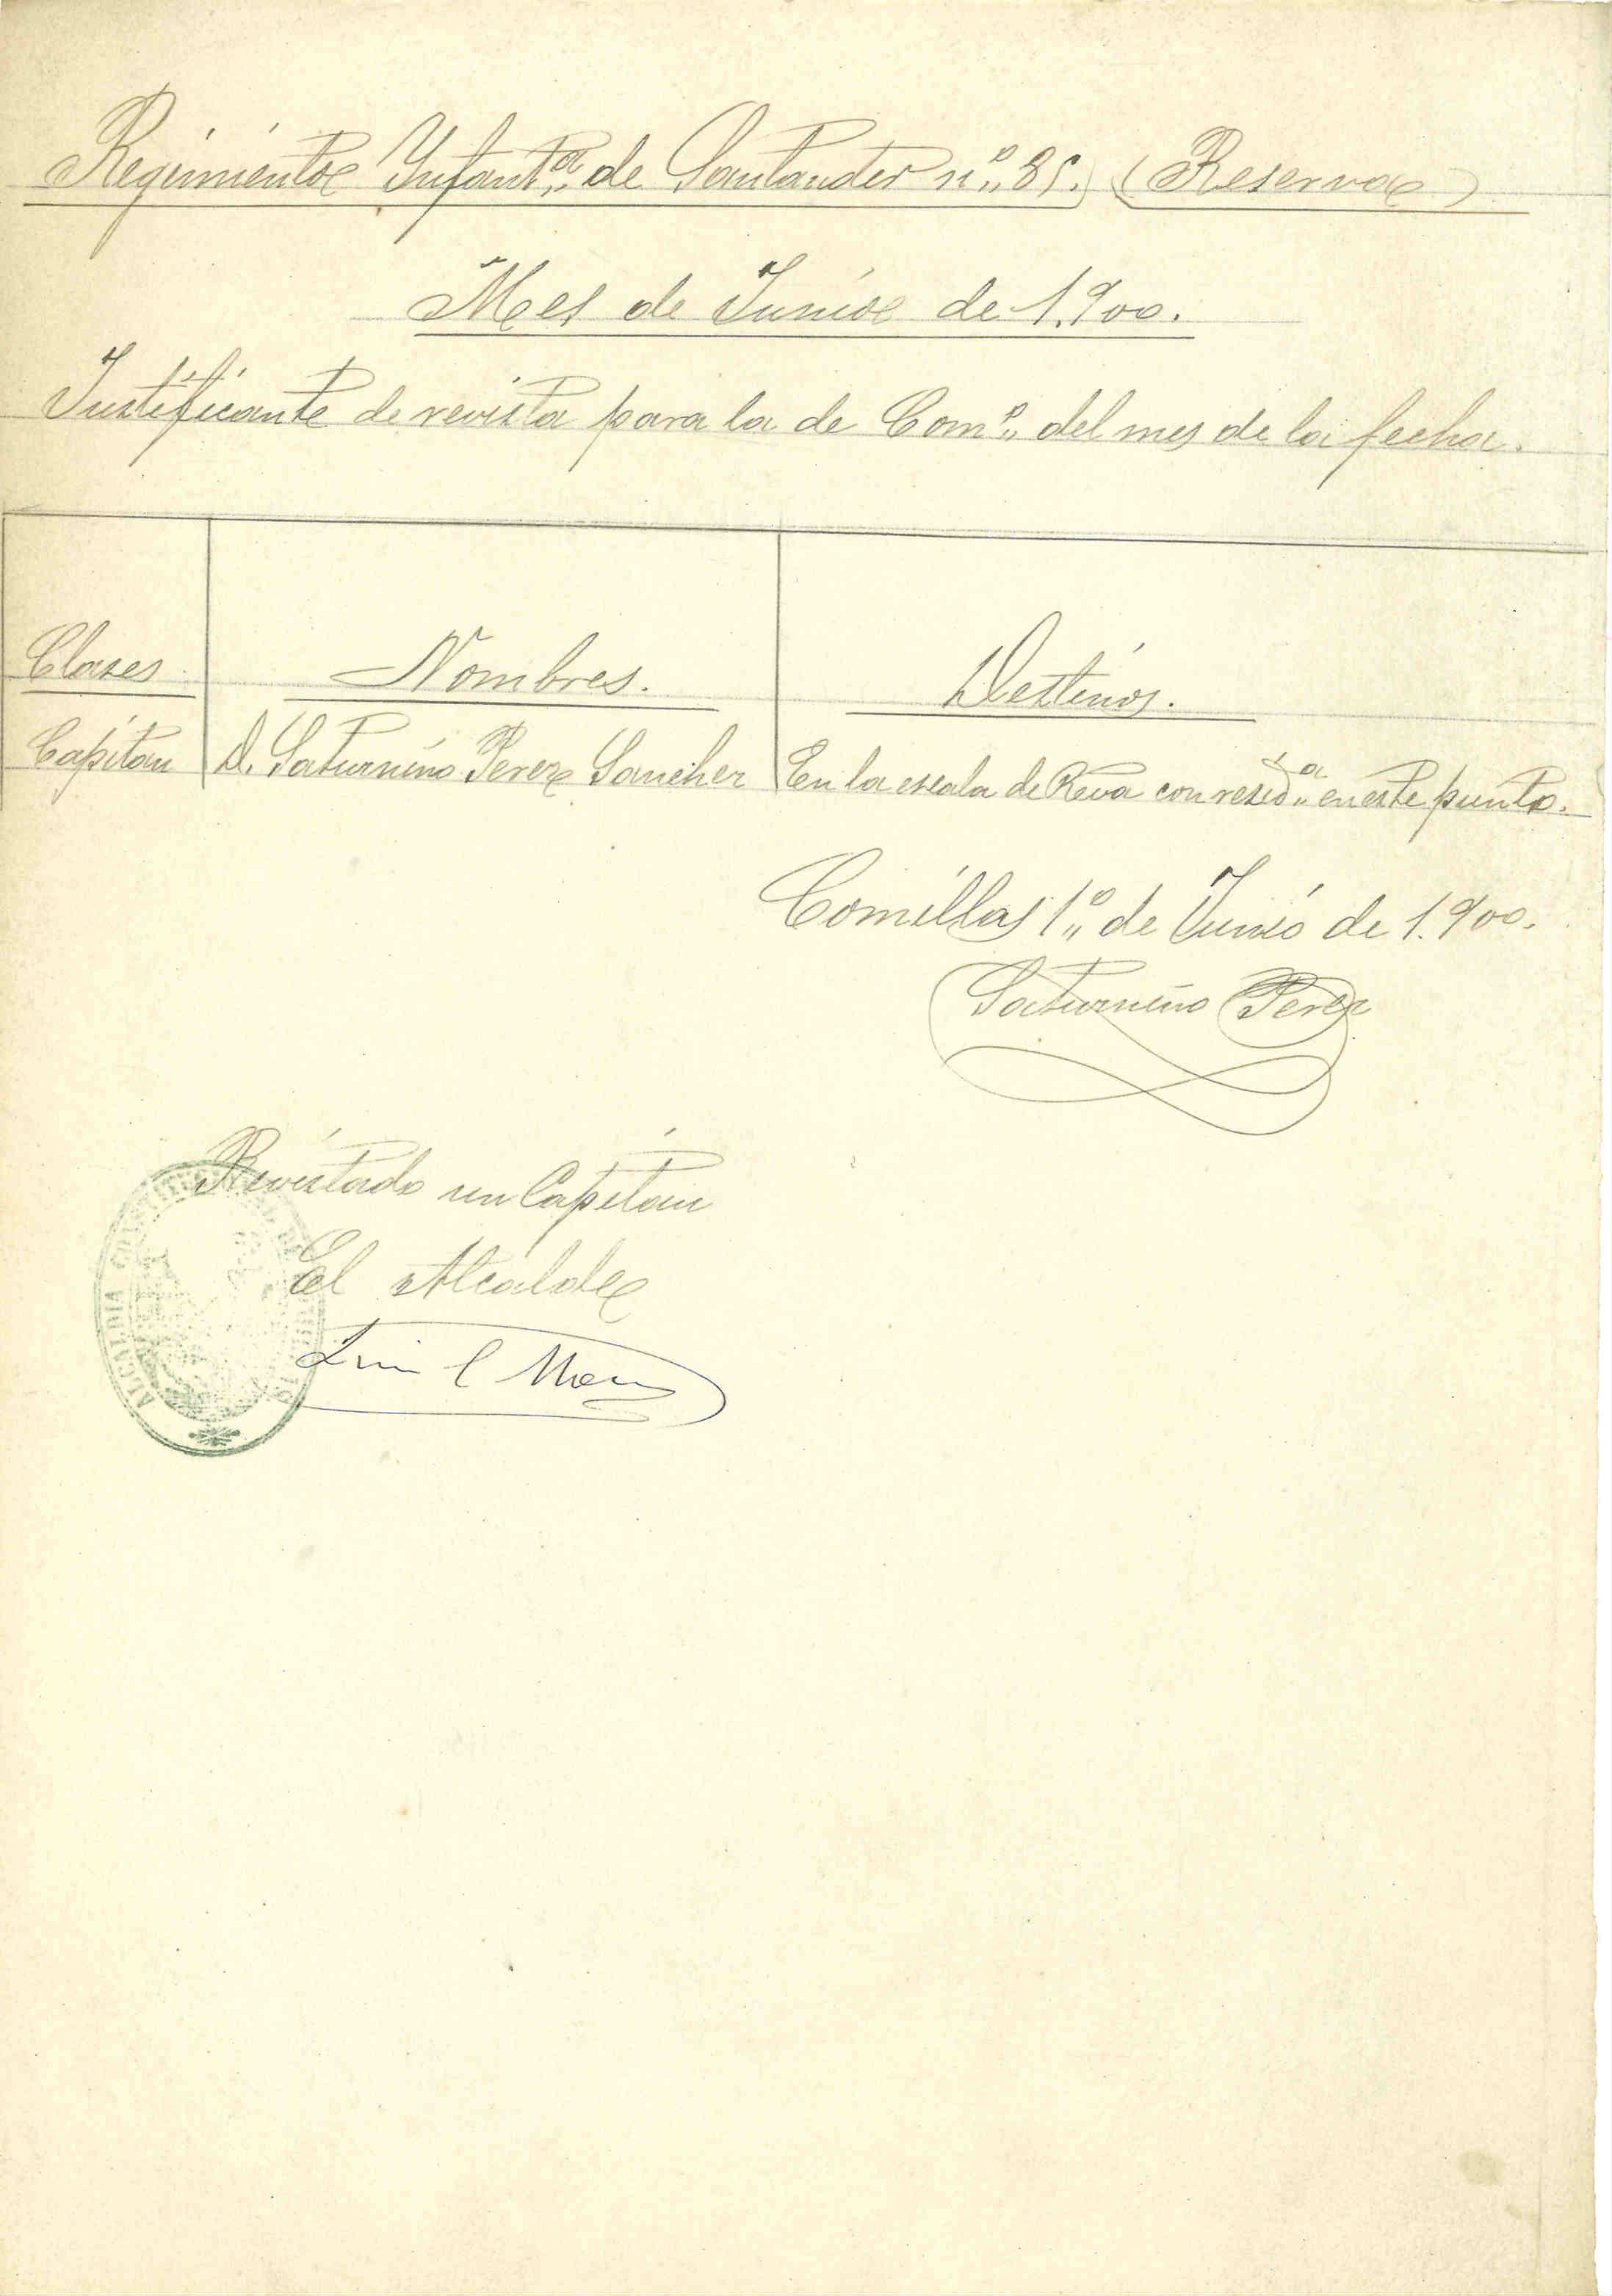 Regimiento Infant.ª de Santander n.º 85. (Reserva)
Mes de Junio de 1.900.
Justificante de revista para la de Com.º del mes de la fecha.
Clases Nombres. Destinos.
Capitan D. Saturnino Perez Sanchez En la escala de Rva con resid.ª en este punto.
Comillas 1.º de Junio de 1.900.
Saturnino Perez
Revistado un Capitan
El Alcalde
ALCALDIA